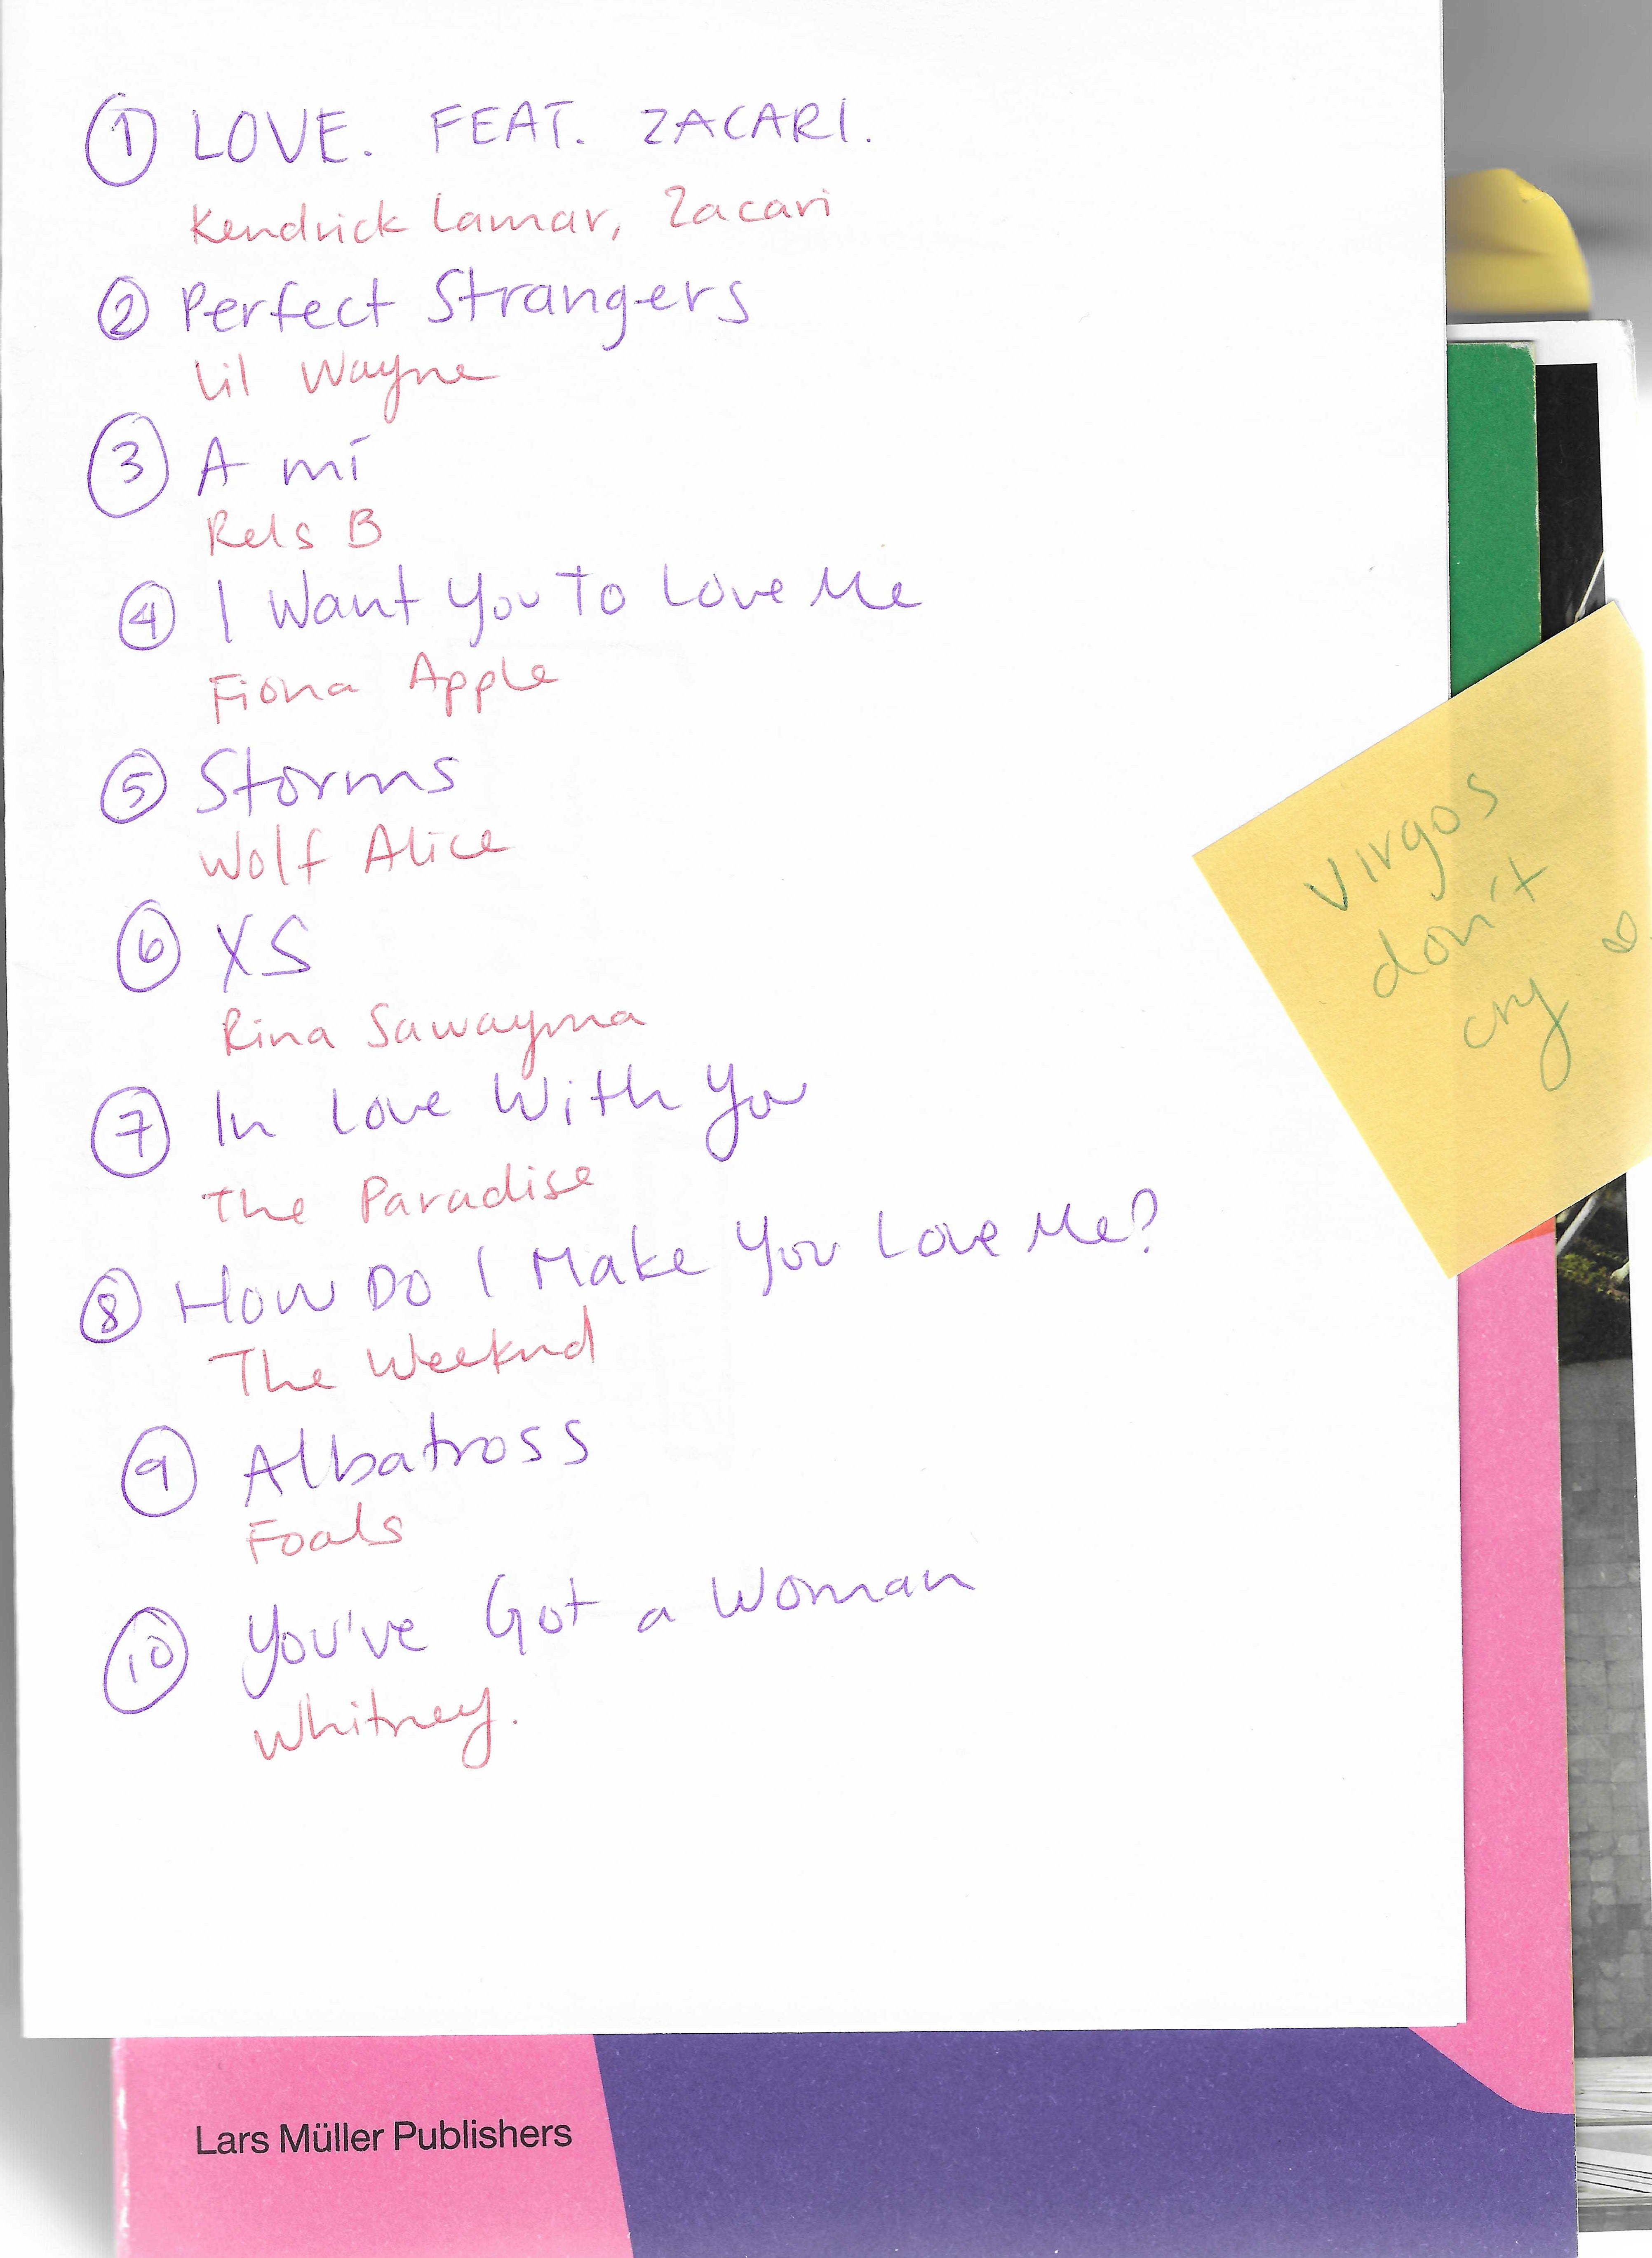 1 LOVE. FEAT. ZACARI.
Kendrick Lamar, Zacari
2 Perfect Strangers
Lil Wayne
3 A mí
Rels B
4 I Want You To Love Me
Fiona Apple
5 Storms
Wolf Alice
6 XS
Rina Sawayma
7 In Love With You
The Paradise
8 How Do I Make You Love Me?
The Weeknd
9 Albatross
Foals
10 You've Got a Woman
Whitney.
Virgos
don't
cry
Lars Müller Publishers